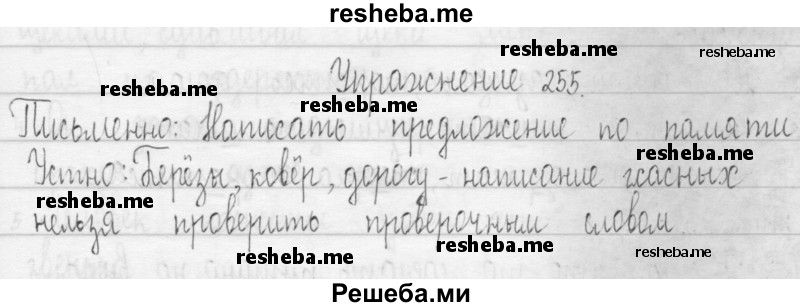 resheba.me
resheba.me resheba.me
Упражнение 255.
resheba.me resheba.me
Письменно: Написать предложение по памяти
resheba.me
Устно: Берёзы, ковёр, дорогу - написание гласных
resheba.me
нельзя проверить проверочным словом.
resheba.me resheba.me resheba.me
Решеба.ми